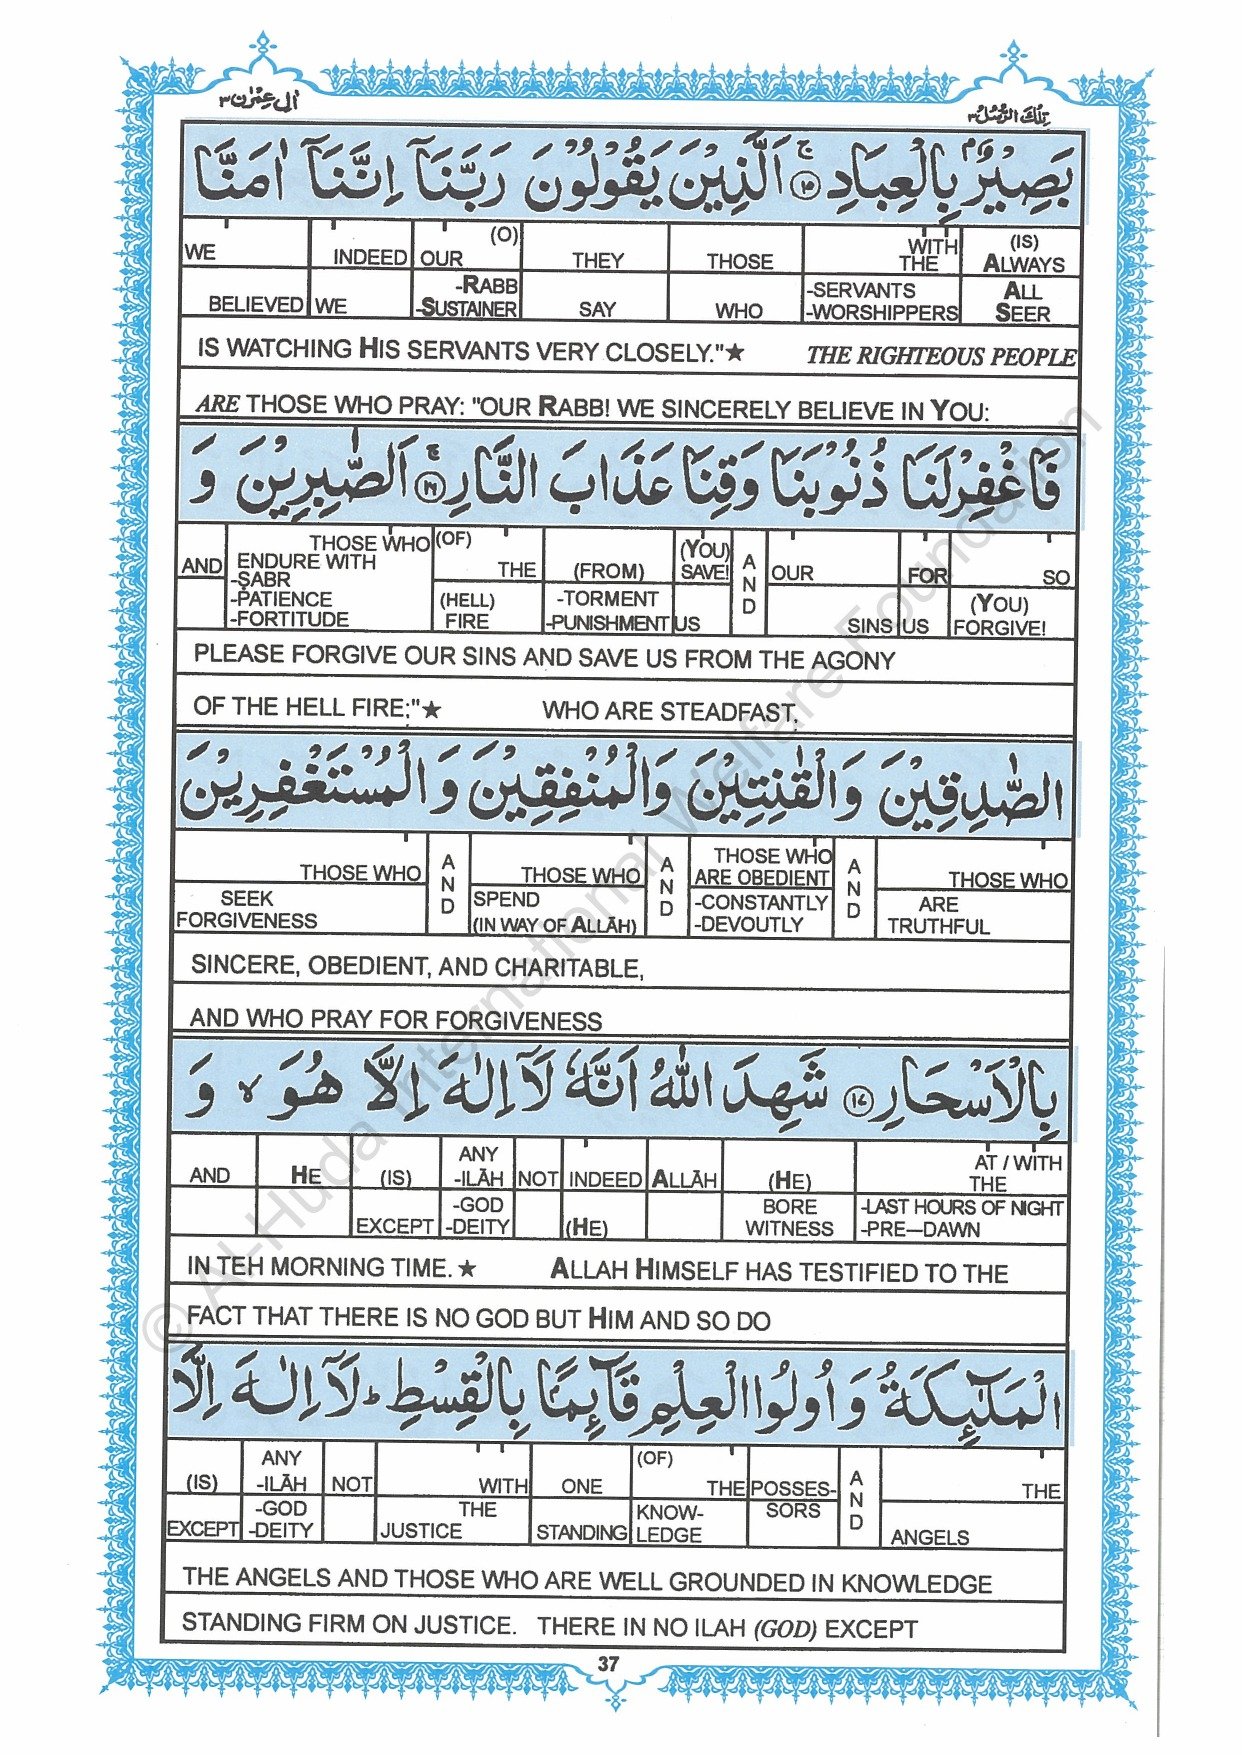 اٰل عِمْرٰن ٣
تِلْكَ الرُّسُلُ ٣
بَصِيْرٌۢ بِالْعِبَادِ ۚ ﴿١٥﴾ اَلَّذِيْنَ يَقُوْلُوْنَ رَبَّنَاۤ اِنَّنَاۤ اٰمَنَّا
WE INDEED OUR (O) THEY THOSE WITH THE (IS) ALWAYS
BELIEVED WE -RABB -SUSTAINER SAY WHO -SERVANTS -WORSHIPPERS ALL SEER
IS WATCHING HIS SERVANTS VERY CLOSELY."★ THE RIGHTEOUS PEOPLE
ARE THOSE WHO PRAY: "OUR RABB! WE SINCERELY BELIEVE IN YOU:
فَاغْفِرْلَنَا ذُنُوْبَنَا وَقِنَا عَذَابَ النَّارِ ۚ ﴿١٦﴾ اَلصّٰبِرِيْنَ وَ
AND THOSE WHO ENDURE WITH -ṢABR -PATIENCE -FORTITUDE (OF) THE (FROM) (YOU) SAVE! AND OUR FOR SO
(HELL) FIRE -TORMENT -PUNISHMENT US SINS US (YOU) FORGIVE!
PLEASE FORGIVE OUR SINS AND SAVE US FROM THE AGONY
OF THE HELL FIRE;"★ WHO ARE STEADFAST,
الصّٰدِقِيْنَ وَالْقٰنِتِيْنَ وَالْمُنْفِقِيْنَ وَالْمُسْتَغْفِرِيْنَ
THOSE WHO AND THOSE WHO AND THOSE WHO ARE OBEDIENT AND THOSE WHO
SEEK FORGIVENESS SPEND (IN WAY OF ALLĀH) -CONSTANTLY -DEVOUTLY ARE TRUTHFUL
SINCERE, OBEDIENT, AND CHARITABLE,
AND WHO PRAY FOR FORGIVENESS
بِالْاَسْحَارِ ﴿١٧﴾ شَهِدَ اللّٰهُ اَنَّهٗ لَاۤ اِلٰهَ اِلَّا هُوَ ۙ وَ
AND HE (IS) ANY -ILĀH NOT INDEED ALLĀH (HE) AT / WITH THE
EXCEPT -GOD -DEITY (HE) BORE WITNESS -LAST HOURS OF NIGHT -PRE—DAWN
IN TEH MORNING TIME. ★ ALLAH HIMSELF HAS TESTIFIED TO THE
FACT THAT THERE IS NO GOD BUT HIM AND SO DO
الْمَلٰٓئِكَةُ وَ اُولُوا الْعِلْمِ قَآئِمًۢا بِالْقِسْطِ ؕ لَاۤ اِلٰهَ اِلَّا
(IS) ANY -ILĀH NOT WITH ONE (OF) THE POSSES- AND THE
EXCEPT -GOD -DEITY THE JUSTICE STANDING KNOW- LEDGE SORS ANGELS
THE ANGELS AND THOSE WHO ARE WELL GROUNDED IN KNOWLEDGE
STANDING FIRM ON JUSTICE. THERE IN NO ILAH (GOD) EXCEPT
37
© Al-Huda International Welfare Foundation